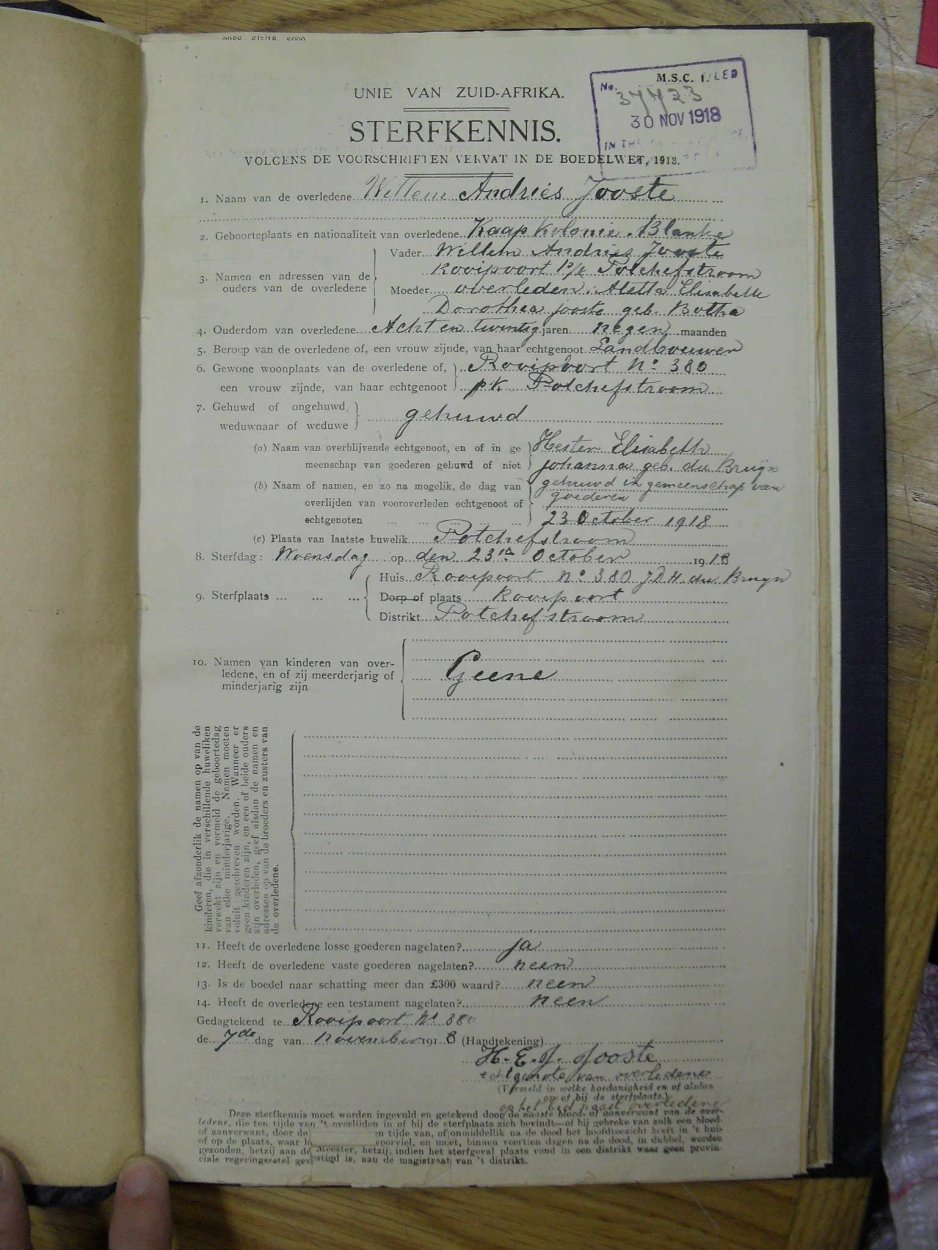 M.S.C. 1.
No. 37723 FILED
30 NOV 1918
IN THE
UNIE VAN ZUID-AFRIKA.
STERFKENNIS.
VOLGENS DE VOORSCHRIFTEN VERVAT IN DE BOEDELWET, 1913.
1. Naam van de overledene Willem Andries Jooste
2. Geboorteplaats en nationaliteit van overledene Kaap Kolonie. Blanke
3. Namen en adressen van de ouders van de overledene
Vader Willem Andries Jooste
Rooipoort Potchefstroom
Moeder overleden. Aletta Elisabella
Dorothea jooste geb. Botha
4. Ouderdom van overledene Acht en twintig jaren negen maanden
5. Beroep van de overledene of, een vrouw zijnde, van haar echtgenoot Landbouwer
6. Gewone woonplaats van de overledene of, Rooipoort No. 380
een vrouw zijnde, van haar echtgenoot pk Potchefstroom
7. Gehuwd of ongehuwd, weduwnaar of weduwe gehuwd
(a) Naam van overblijvende echtgenoot, en of in ge Hester Elisabeth
meenschap van goederen gehuwd of niet johanna geb. du Bruyn
(b) Naam of namen, en zo na mogelik, de dag van gehuwd in gemeenschap van
overlijden van vooroverleden echtgenoot of goederen
echtgenoten ... ... ... ... 23 October 1918
(c) Plaats van laatste huwelik Potchefstroom
8. Sterfdag: Woensdag op den 23ste October 1918
9. Sterfplaats ... ... ...
Huis Rooipoort No. 380 J.D.H. du Bruyn
Dorp of plaats Rooipoort
Distrikt Potchefstroom
10. Namen van kinderen van over-
ledene, en of zij meerderjarig of
minderjarig zijn
Geene
Geef afzonderlik de namen op van de
kinderen, die in verschillende huweliken
verwekt zijn en vermeld de geboortedag
van elke minderjarige. Namen moeten
voluit geschreven worden. Wanneer er
geen kinderen zijn, en een of beide ouders
zijn overleden, geef alsdan de namen en
adressen op van de broeders en zusters van
de overledene.
11. Heeft de overledene losse goederen nagelaten? ja
12. Heeft de overledene vaste goederen nagelaten? neen
13. Is de boedel naar schatting meer dan £300 waard? neen
14. Heeft de overledene een testament nagelaten? neen
Gedagtekend te Rooipoort No 380
de 7de dag van november 1918 (Handtekening)
H. E. J. Jooste
echtgenote van overledene
(Vermeld in welke hoedanigheid en of alsdan
op of bij de sterfplaats.)
overledene
Deze sterfkennis moet worden ingevuld en getekend door de naaste bloed- of aanverwant van de over-
ledene, die ten tijde van 't overlijden in of bij de sterfplaats zich bevindt—of bij gebreke van zulk een bloed-
of aanverwant, door de en tijde van, of onmiddellik na de dood het hoofdtoezicht heeft in 't huis
of op de plaats, waar h voorviel, en moet, binnen veertien dagen na de dood, in dubbel, worden
gezonden, hetzij aan de Meester, hetzij, indien het sterfgeval plaats vond in een distrikt waar geen provin-
ciale regeringszetel gev stigd is, aan de magistraat van 't distrikt.